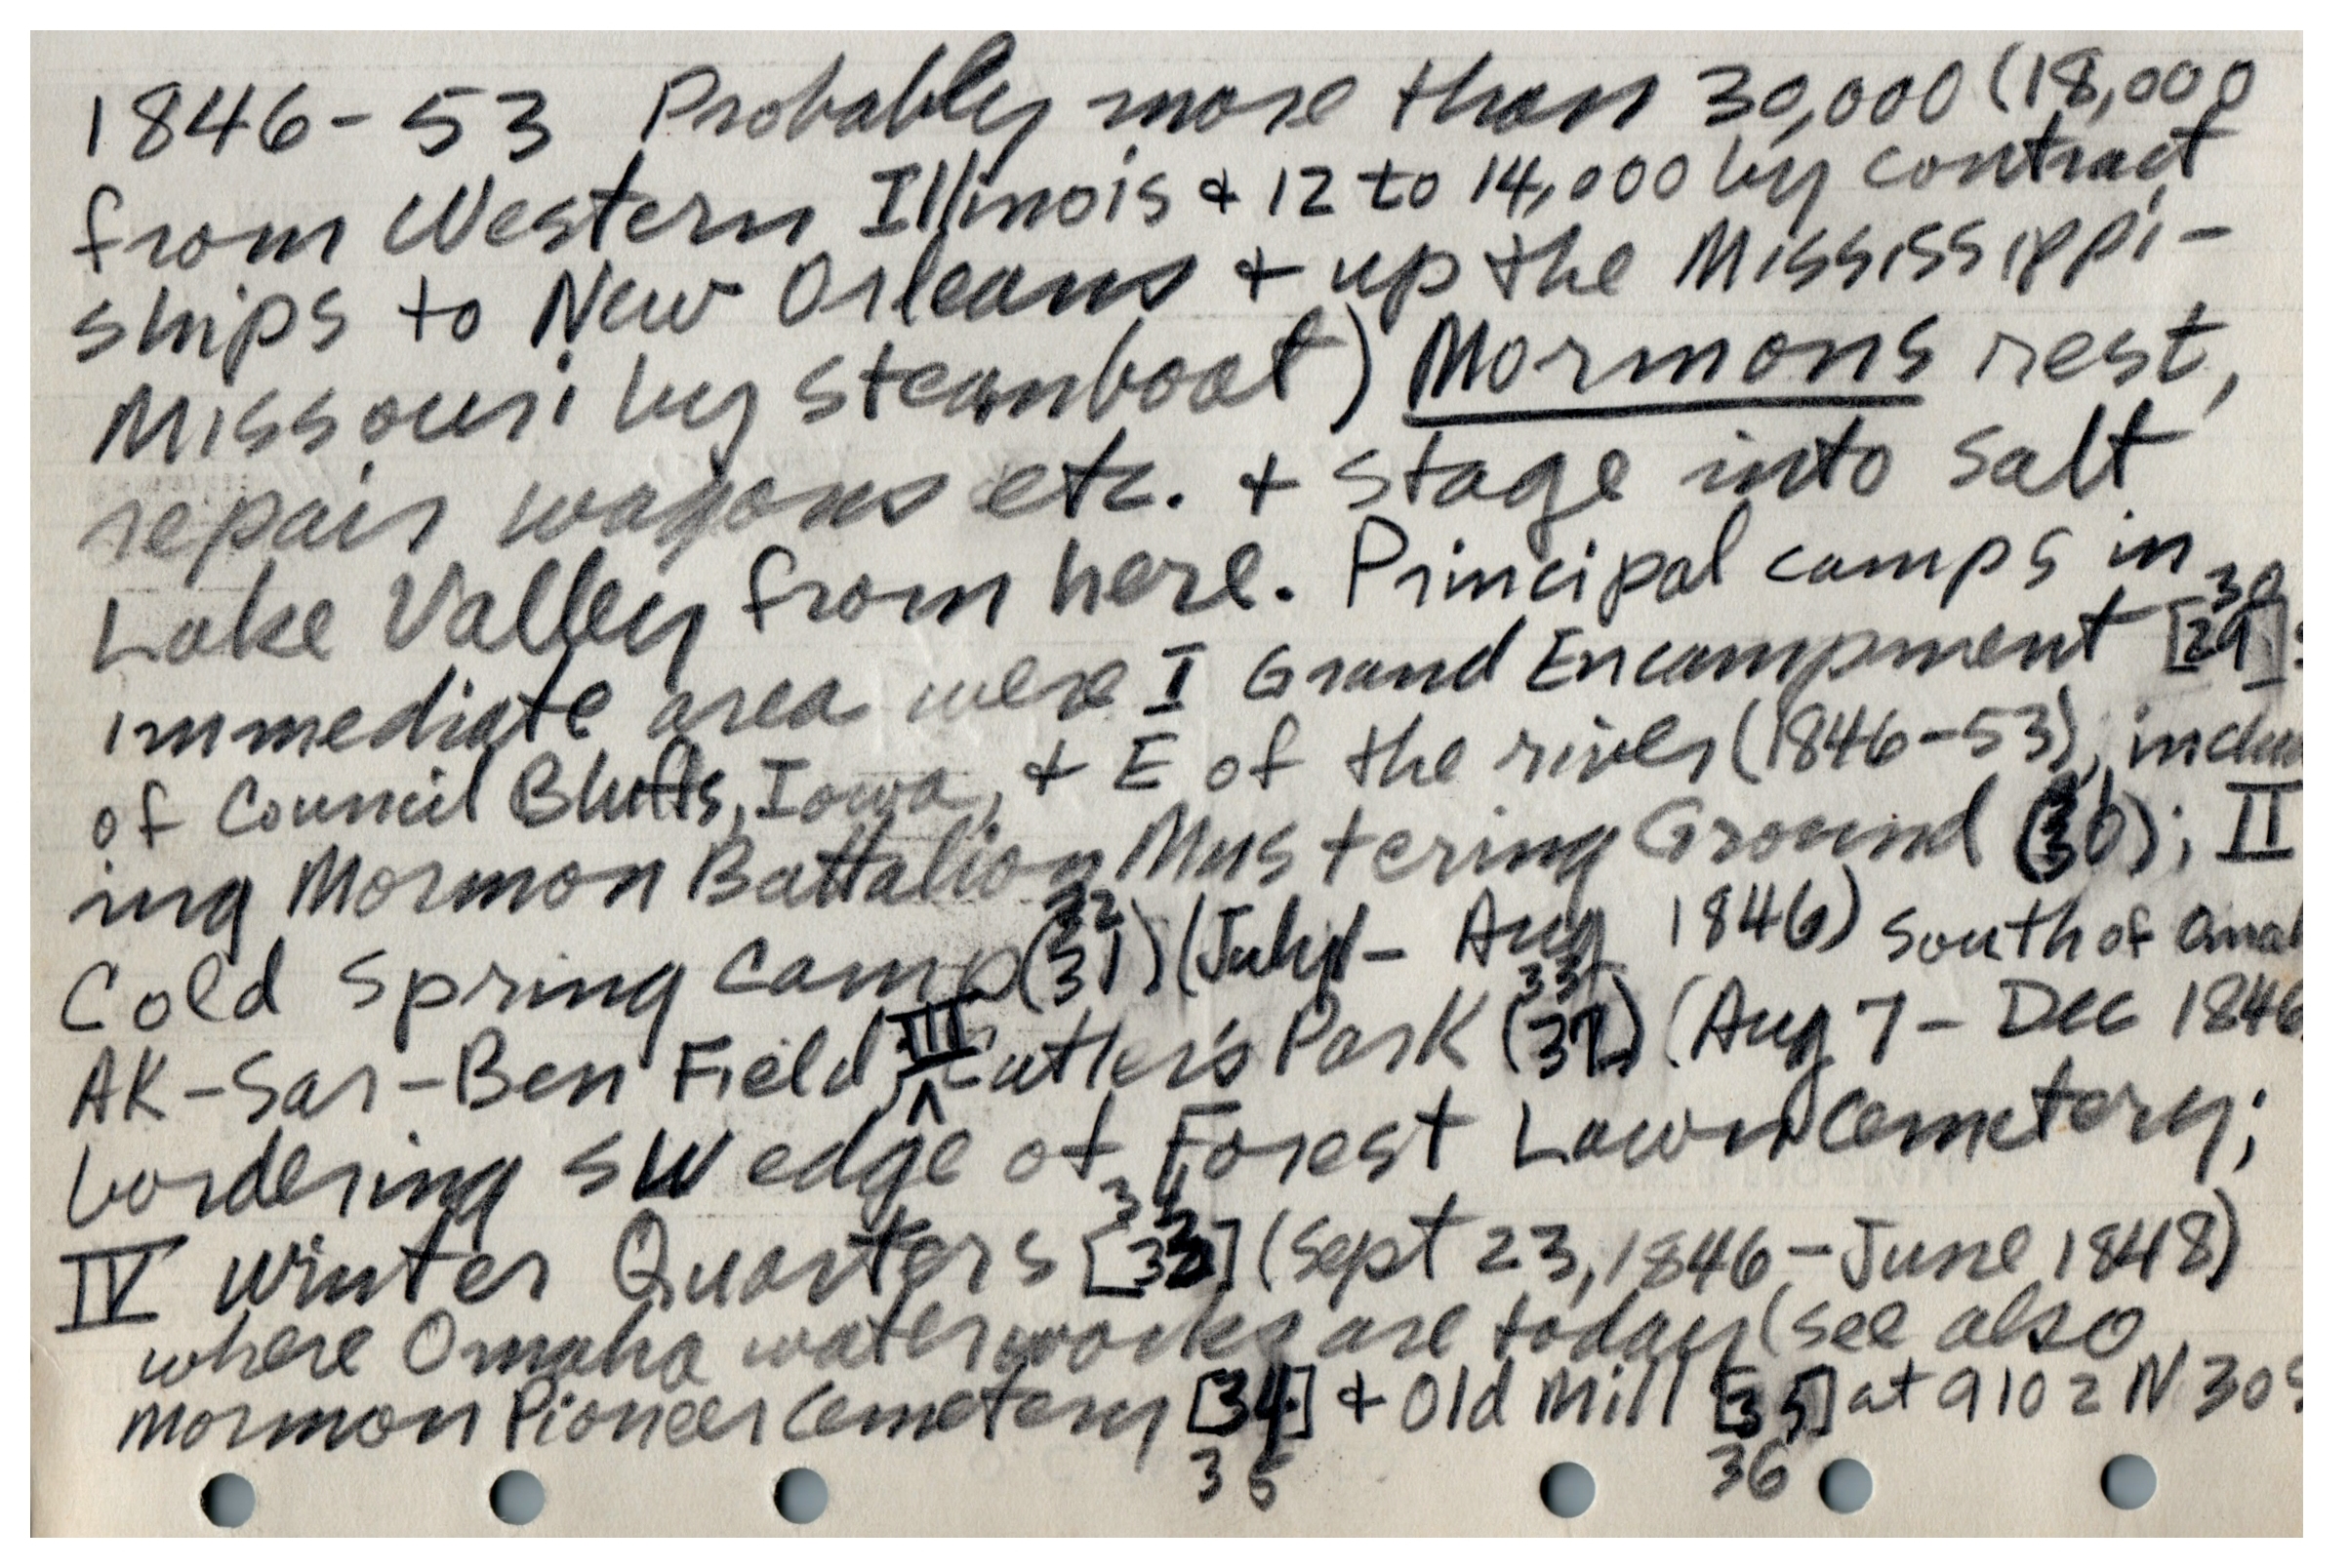 1846-53 Probably more than 30,000 (18,000
from Western Illinois & 12 to 14,000 by contract
ships to New Orleans & up the Mississippi-
Missouri by steamboat) Mormons rest,
repair wagons etc. & stage into Salt
Lake Valley from here. Principal camps in
30
immediate area were I Grand Encampment [29]
of Council Bluffs, Iowa, & E of the river (1846-53), includ
ing Mormon Battalion Mustering Ground (30); II
32
Cold Spring Camp (31) (July - Aug 1846) South of Omah
33
AK-Sar-Ben Field, III Cutler's Park (32) (Aug 7 - Dec 1846
bordering SW edge of Forest Lawn Cemetery;
34
IV Winter Quarters [33] (Sept 23, 1846 - June 1848)
where Omaha waterworks are today (see also
Mormon Pioneer Cemetery [34] & Old Mill [35] at 9102 N 30
35 36